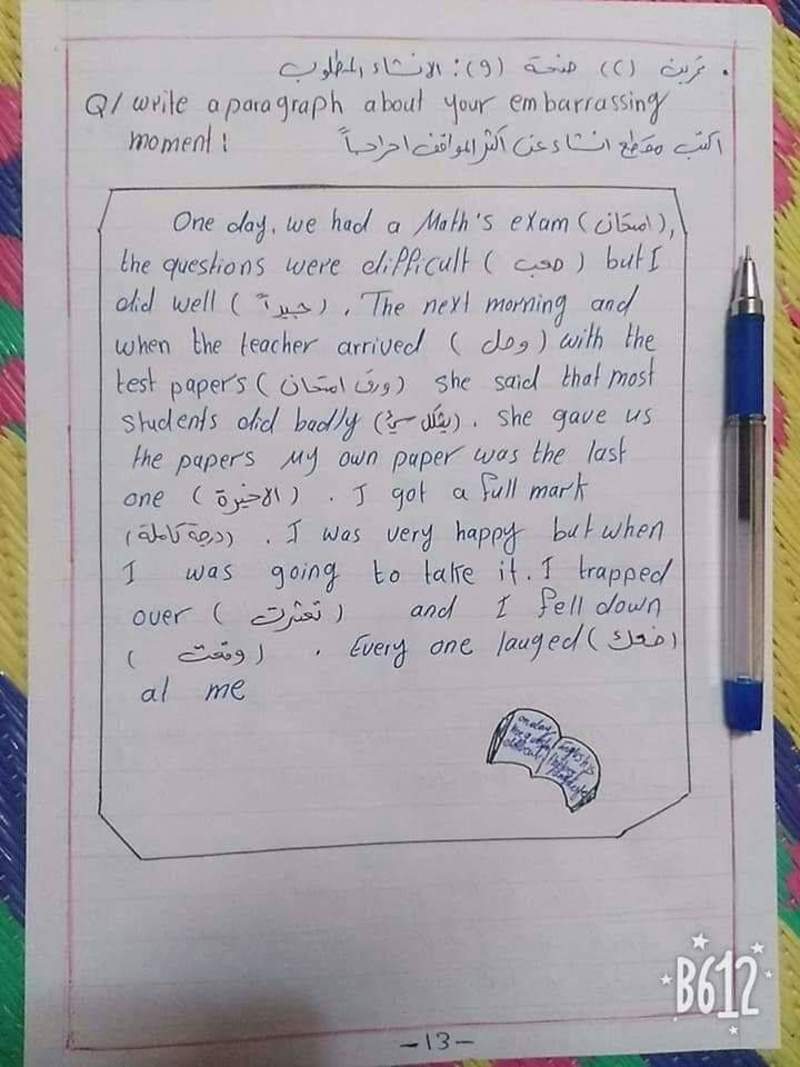 . تمرين (C) صفحة (9): الانشاء المطلوب
Q/ write a paragraph about your embarrassing
moment!
اكتب مقطع انشاء عن أكثر المواقف احراجاً
One day, we had a Math's exam (امتحان),
the questions were difficult (صعب) but I
did well (جيداً). The next morning and
when the teacher arrived (وصل) with the
test papers (ورق امتحان) she said that most
students did badly (بشكل سيئ). she gave us
the papers My own paper was the last
one (الاخيرة). I got a full mark
(درجة كاملة). I was very happy but when
I was going to take it. I trapped
over (تعثرت) and I fell down
(وقعت). Every one lauged (ضحك)
at me
one day
English is
-13-
B612